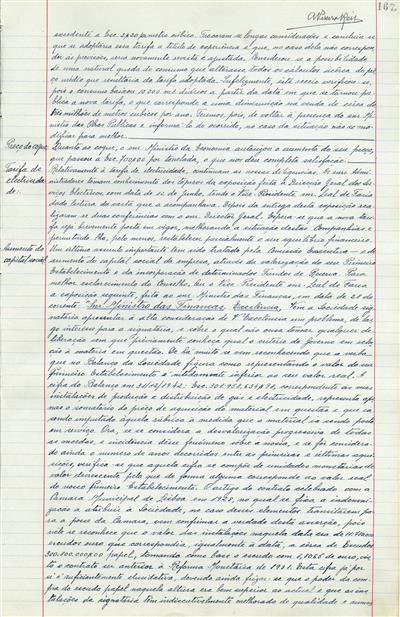 167
excedente a Esc. 2$20 m metro cúbico. Trocaram-se longas considerações e concluiu-se
que se adoptaria essa tarifa a título de experiência e que, no caso dela não correspon-
der às previsões, seria novamente revista e ajustada. Ponderou-se a possibilidade
de uma natural queda de consumo que alterasse todos os cálculos acerca do pre-
ço médio que resultaria da tarifa adoptada. Infelizmente, este receio verificou-se,
pois o consumo baixou 10.000 m3 diários a partir da data em que se tornou pú-
blica a nova tarifa, o que corresponde a uma diminuição na venda de cerca de
três milhões de metros cúbicos por ano. Teremos, pois, de voltar à presença do snr. Mi-
nistro das Obras Públicas e informá-lo do ocorrido, no caso da situação não se mo-
dificar para melhor.
Preço do coque
Quanto ao coque, o snr. Ministro da Economia autorizou o aumento do seu preço,
que passou a Esc. 700$00 por tonelada, o que nos deu completa satisfação.
Tarifa de electricidade
Relativamente à tarifa de electricidade, continuam as nossas diligências. Os snrs. Admi-
nistradores tomam conhecimento dos termos da exposição feita à Direcção Geral dos Ser-
viços Eléctricos, com data de 21 de Junho, tendo o Vice-Presidente snr. Leal de Faria
dado leitura da carta que a acompanhava. Depois da entrega desta exposição rea-
lizaram-se duas conferências com o snr. Director Geral. Espera-se que a nova tari-
fa seja brevemente posta em vigor, melhorando a situação destas Companhias e
permitindo-lhe, pelo menos, restabelecer parcialmente o seu equilíbrio financeiro.
Aumento do capital social
Um último assunto importante tem sido tratado pela Comissão Executiva – o do
aumento de capital social da empresa, através da valorização do seu Primeiro
Estabelecimento e da incorporação de determinados Fundos de Reserva. Para
melhor esclarecimento do Conselho, leu o Vice Presidente snr. Leal de Faria
a exposição seguinte, feita ao snr. Ministro das Finanças, em data de 28 do
corrente: "Snr. Ministro das Finanças. Excelência. Tem a Sociedade sig-
natária apresentar à alta consideração de V. Excelência um problema de lar-
go interesse para a signatária, e sobre o qual não ousa tomar qualquer de-
liberação sem que previamente conheça qual o critério do Governo em rela-
ção à matéria em questão. De há muito se vem reconhecendo que a verba
que no Balanço da Sociedade figura como representando o valor do seu
Primeiro Estabelecimento é nitidamente inferior ao seu valor real. A
cifra do Balanço em 31/12/1942: Esc. 301.951.629$90, correspondente às suas
instalações de produção e distribuição de gás e electricidade, representa ape-
nas o somatório do preço de aquisição do material em questão e que ia
sendo imputado àquela rúbrica à medida que o material ia sendo posto
em serviço. Ora, se se considera a desvalorização progressiva de todas
as moedas, e incidência desse fenómeno sobre a nossa, e se for considera-
do ainda o número de anos decorridos entre as primeiras e últimas aqui-
sições, verifica-se que aquela cifra se compõe de unidades monetárias de
valor decrescente pelo que de forma alguma corresponde ao valor real
do nosso Primeiro Estabelecimento. O artigo do contrato celebrado com a
Câmara Municipal de Lisboa em 1928, no qual se fixa a indemni-
zação a atribuir à Sociedade, no caso desses elementos transitarem pa-
ra a posse da Câmara, vem confirmar a verdade desta asserção, pois
nele se reconhece que o valor das instalações naquela data era de
escudos ouro que correspondia, igualmente à data, a cerca de Escudos
300.000.000$00 papel, tomando como base o escudo com 1,8065 de ouro, vis-
to o contrato ser anterior à Reforma Monetária de 1931. Esta cifra já por
si é suficientemente elucidativa, devendo ainda frizar-se que o poder de com-
pra do escudo papel naquela altura era bem superior ao actual e que as ins-
talações da signatária têm indiscutivelmente melhorado de qualidade e aumen-